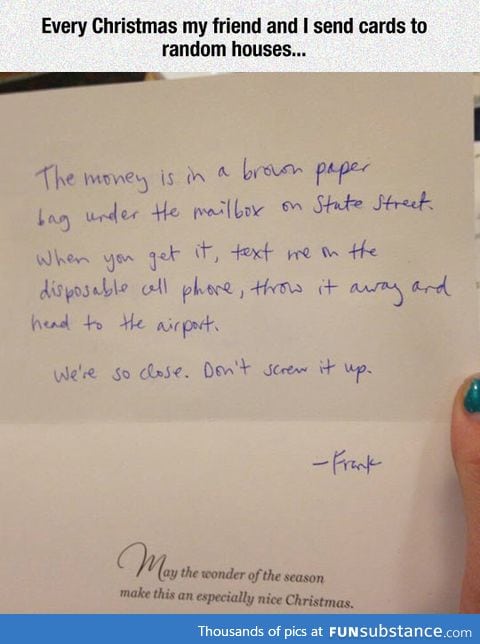 Every Christmas my friend and I send cards to
random houses...
The money is in a brown paper
bag under the mailbox on State Street.
When you get it, text me on the
disposable cell phone, throw it away and
head to the airport.
We're so close. Don't screw it up.
-Frank
May the wonder of the season
make this an especially nice Christmas.
Thousands of pics at FUNsubstance.com